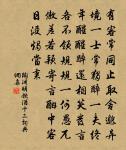 有客常同止取舍邈異
境一士常獨醉一夫終
年醒醒醉還相笑發言
各不領規規一何愚兀
傲差若穎寄言酣中客
日沒燭當秉
陶淵明飲酒十三